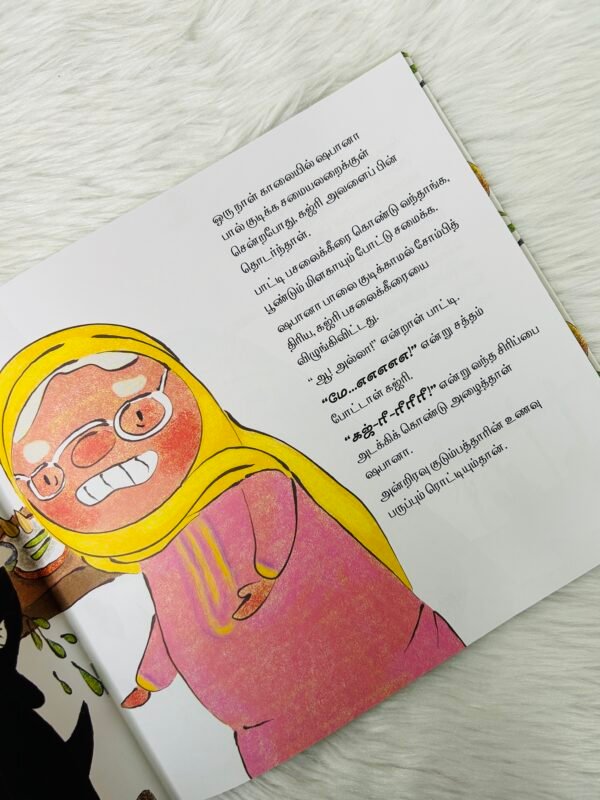 ஒரு நாள் காலையில் ஷபானா
பால் குடிக்க சமையலறைக்குள்
சென்றபோது, கஜ்ரி அவளைப் பின்
தொடர்ந்தாள்.
பாட்டி பசலைக்கீரை கொண்டு வந்தாங்க,
பூண்டும் மிளகாயும் போட்டு சமைக்க.
ஷபானா பாலை குடிக்காமல் சோம்பித்
திரிய, கஜ்ரி பசலைக்கீரையை
விழுங்கிவிட்டது.
“ஆ! அல்லா!” என்றாள் பாட்டி.
“மே...எஎஎஎஎ!” என்று சத்தம்
போட்டாள் கஜ்ரி.
“கஜ்-ரீ-ரீரீரீ!” என்று வந்த சிரிப்பை
அடக்கிக் கொண்டு அழைத்தாள்
ஷபானா.
அன்றிரவு குடும்பத்தாரின் உணவு
பருப்பும் ரொட்டியும்தான்.